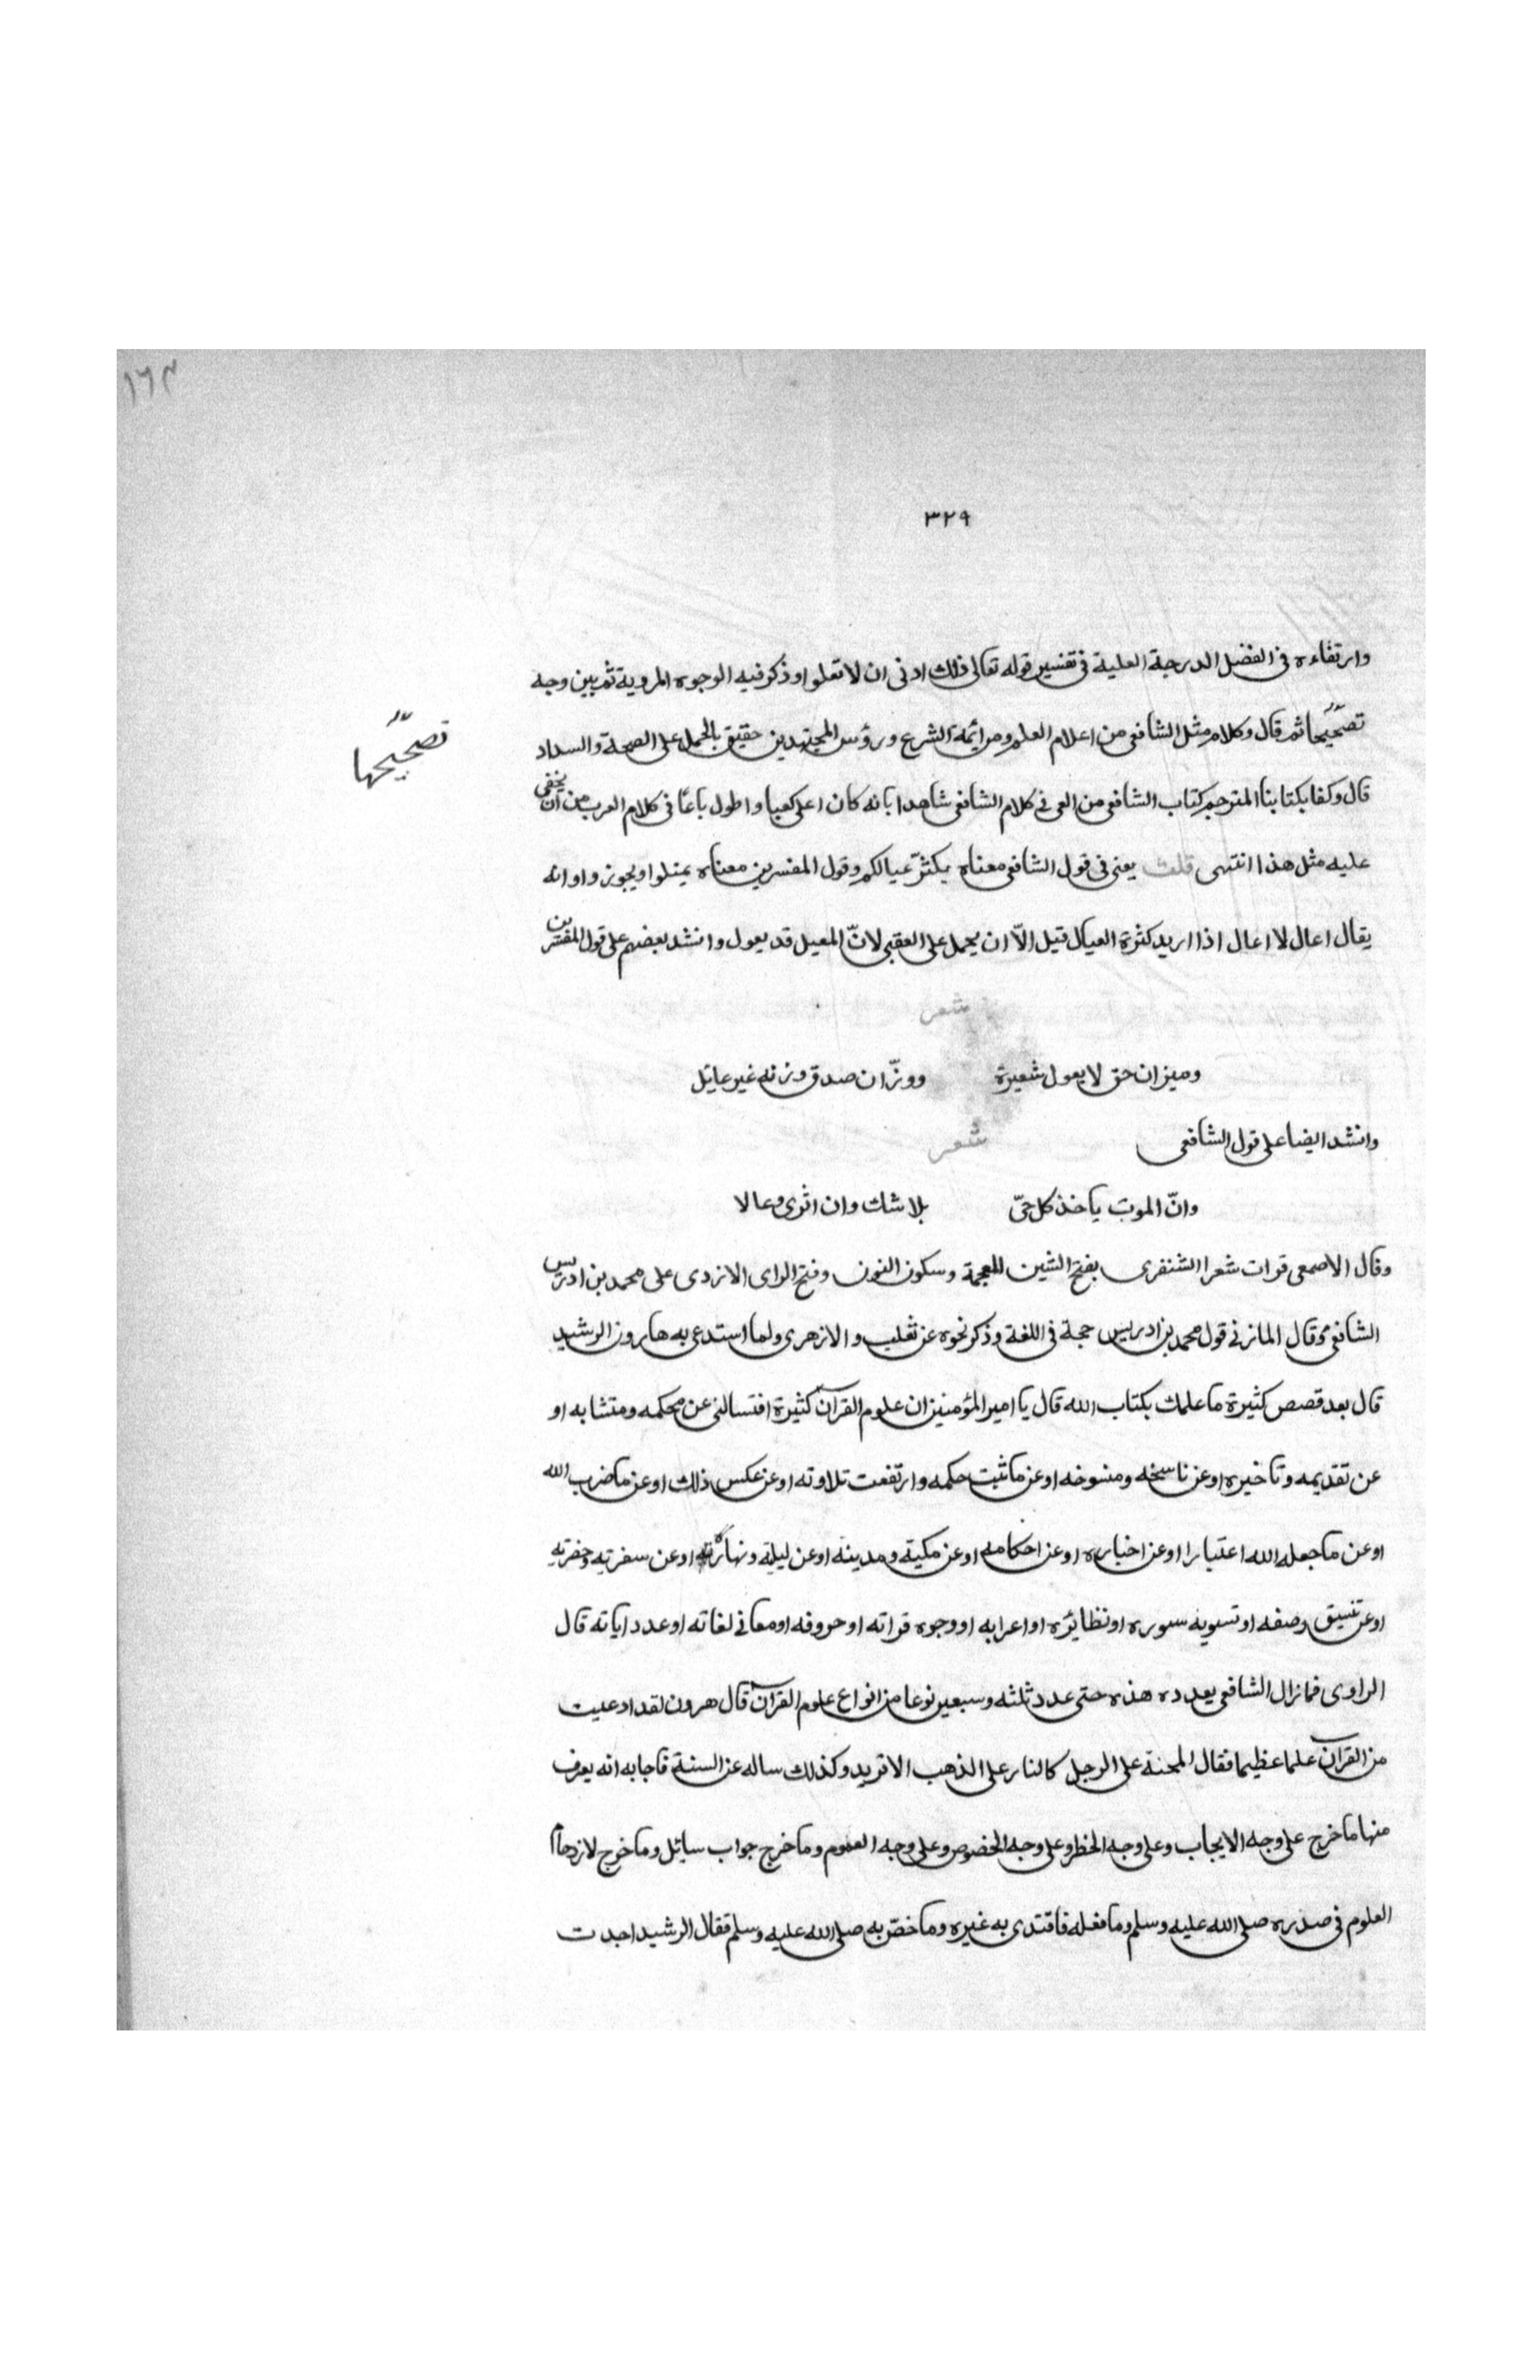 ١٦٣
٣٢٩
وارتفاءه فى الفضل الدرجة العلية فى تفسير قوله تعالى ذلك ادنى ان لا تعلوا وذكر فيه الوجوه المروية ثم بين وجه
تصحيحها ثم قال وكلام مثل الشافعى من اعلام العلم ومن ائمة الشرع ورؤس المجتهدين حقيق بالحمل على الصحة والسداد
تصحيحها
قال وكفا بكتابنا المترجم كتاب الشافعى من العى فى كلام الشافعى شاهدا بانه كان اعلى كعبا واطول باعًا فى كلام العرب من ان يخفى
عليه مثل هذا انتهى قلت يعنى فى قول الشافعى معناه يكثر عيالكم وقول المفسرين معناه يميلوا ويجوزوا وانه
يقال اعال لا اعال اذا اريد كثرة العيال قتيل الّا ان يحمل على العقبى لانّ المعيل قد يعول وانشد بعضهم على قول المفسرين
شعر
وميزان حق لا يعول شعيرة ووزّان صدق وزنه غير عايل
وانشد ايضا على قول الشافعى شعر
وانّ الموت ياخذ كل حىّ بلا شك وان اثرى وعالا
وقال الاصمعى قرات شعر الشنفرى بفتح الشين المعجمة وسكون النون وفتح الراى الازدى على محمد بن ادريس
الشافعى وقال المازنى قول محمد بن ادريس حجة فى اللغة وذكر نحوه عن ثعلب والازهرى ولما استدعى به هارون الرشيد
قال بعد قصص كثيرة ما علمك بكتاب الله قال يا امير المؤمنين ان علوم القرآن كثيرة افتسالنى عن محكمه ومتشابه او
عن تقديمه وتاخيره اوعن ناسخه ومنسوخه اوعن ما ثبت حكمه وارتفعت تلاوته اوعن عكس ذلك اوعن ما ضرب الله
اوعن ما جعله الله اعتبارا اوعن اخباره اوعن احكامه اوعن مكية ومدينه اوعن ليلية ونهارته اوعن سفرته وحضرته
اوعن تنسيق وصفه او تسوية سوره او نظائره او اعرابه او وجوه قراته او حروفه او معانى لغاته او عدد اياته قال
الراوى فما زال الشافعى يعدده هذه حتى عدد ثلثه وسبعين نوعا من انواع علوم القرآن قال هرون لقد ادعيت
من القرآن علما عظيما فقال المحنة على الرجل كالنار على الذهب الاتريد وكذلك ساله عن السنة فاجابه انه يعرف
منها ما خرج على وجه الايجاب وعلى وجه الحظر وعلى وجه الخصوص وعلى وجه العموم وما خرج جواب سائل وما خرج لازدحام
العلوم فى صدره صلى الله عليه وسلم وما فعله فاقتدى به غيره وما خصّ به صلى الله عليه وسلم فقال الرشيد اجدت